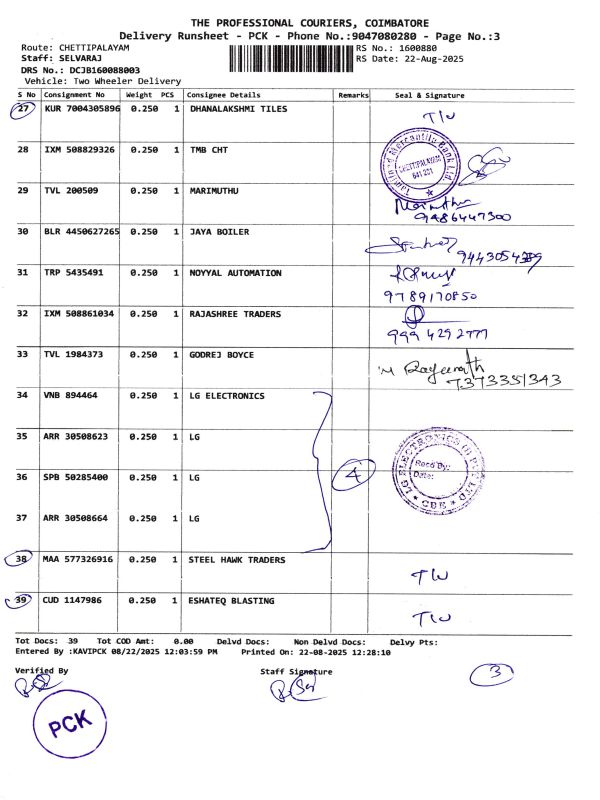 THE PROFESSIONAL COURIERS, COIMBATORE
Delivery Runsheet - PCK - Phone No.:9047080280 - Page No.:3
Route: CHETTIPALAYAM RS No.: 1600880
Staff: SELVARAJ RS Date: 22-Aug-2025
DRS No.: DCJB160088003
Vehicle: Two Wheeler Delivery
S No Consignment No Weight PCS Consignee Details Remarks Seal & Signature
27 KUR 7004305896 0.250 1 DHANALAKSHMI TILES
28 IXM 508829326 0.250 1 TMB CHT
Tamilnad Mercantile Bank Ltd.
CHETTIPALAYAM
641 201
29 TVL 200509 0.250 1 MARIMUTHU
9486447300
30 BLR 4450627265 0.250 1 JAYA BOILER
31 TRP 5435491 0.250 1 NOYYAL AUTOMATION
9789170850
32 IXM 508861034 0.250 1 RAJASHREE TRADERS
999 429 2777
33 TVL 1984373 0.250 1 GODREJ BOYCE
7373351343
34 VNB 894464 0.250 1 LG ELECTRONICS
35 ARR 30508623 0.250 1 LG
36 SPB 50285400 0.250 1 LG
4
LG ELECTRONICS (I) PVT LTD
Recd By:
Date:
CBE
37 ARR 30508664 0.250 1 LG
38 MAA 577326916 0.250 1 STEEL HAWK TRADERS
39 CUD 1147986 0.250 1 ESHATEQ BLASTING
Tot Docs: 39 Tot COD Amt: 0.00 Delvd Docs: Non Delvd Docs: Delvy Pts:
Entered By :KAVIPCK 08/22/2025 12:03:59 PM Printed On: 22-08-2025 12:28:10
Verified By Staff Signature
3
PCK